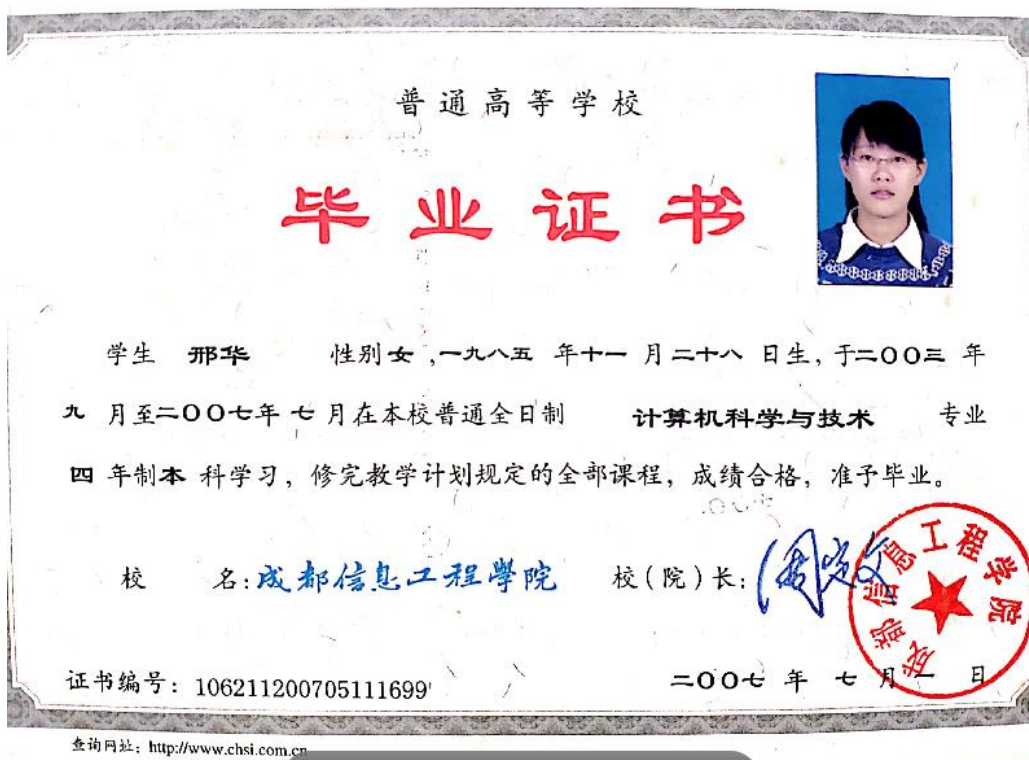 普通高等学校
毕业证书
学生 邢华 性别女,一九八五 年十一 月二十八 日生, 于二〇〇三 年
九 月至二〇〇七年 七 月在本校普通全日制 计算机科学与技术 专业
四 年制本 科学习, 修完教学计划规定的全部课程, 成绩合格, 准予毕业。
校 名:成都信息工程學院 校(院)长:
成都信息工程学院
证书编号: 106211200705111699
二〇〇七 年 七 月 一 日
查询网址: http://www.chsi.com.cn